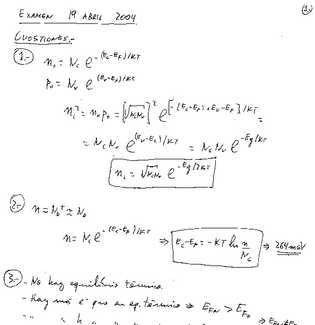 EXAMEN 19 ABRIL 2004
CUESTIONES.-
1.- n₀ = N_c e^{-(E_c-E_F)/KT}
p₀ = N_v e^{(E_v-E_F)/KT}
n_i² = n₀p₀ = [√N_cN_v]² e^{[-(E_c-E_F)+E_v-E_F]/KT} =
= N_c N_v e^{(E_v-E_c)/KT} = N_c N_v e^{-E_g/KT}
n_i = √N_cN_v e^{-E_g/2KT}
2.- n = N_D⁺ ≈ N_D
n = N_c e^{-(E_c-E_F)/KT} ⇒ E_c-E_F = -KT ln n/N_c ⇒ 264 meV
3.- - No hay equilibrio térmico
- Hay más e⁻ que en eq. térmico ⇒ E_{FN} > E_{F₀}